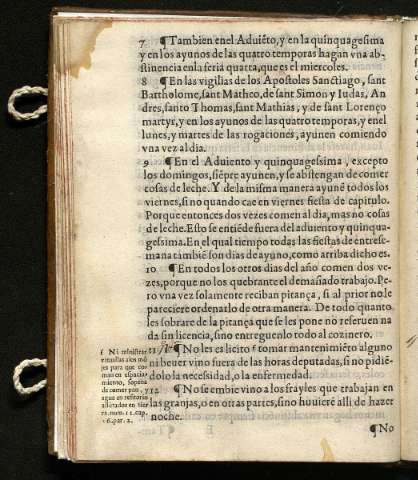 7 ¶Tambien enel Aduiẽto, y en la quinquagesima
y en los ayunos de las quatro temporas hagan vna ab-
stinencia en la feria quarta, que es el miercoles.
8 ¶En las vigilias de los Apostoles Sanctiago, sant
Bartholome, sant Matheo, de sant Simon y Iudas, An
dres, santo Thomas, sant Mathias, y de sant Lorenço
martyr, y en los ayunos de las quatro temporas, y en el
lunes, y martes de las rogaciones, ayunen comiendo
vna vez al dia.
9 ¶En el Aduiento y quinquagessima, excepto
los domingos, siẽpre ayunen, y se abstengan de comer
cosas de leche. Y de la misma manera ayunẽ todos los
viernes, si no quando cae en viernes fiesta de capitulo.
Porque entonces dos vezes comen al dia, mas no cosas
de leche. Esto se entiẽde fuera del aduiento y quinqua-
gessima. En el qual tiempo todas las fiestas de entrese-
mana tambiẽ son dias de ayuno, como arriba dicho es.
10 ¶En todos los otros dias del año comen dos ve-
zes, porque no los quebrante el demasiado trabajo. Pe-
ro vna vez solamente reciban pitança, si al prior no le
pareciere ordenarlo de otra manera. De todo quanto
les sobrare de la pitança que se les pone no reseruen na
da sin licencia, sino entreguenlo todo al cozinero.
11 ¶No les es licito tomar mantenimiẽto alguno
ni beuer vino fuera de las horas deputadas, si no pidiẽ-
dolo la necesidad, o la enfermedad.
¶No se embie vino a los frayles que trabajan en
las granjas, o en otras partes, sino huuierẽ alli de hazer
noche.
¶No
mitullas a los mõ
jes para que co-
man en espacia-
miento,
de comer pan, y
agua en refitorio,